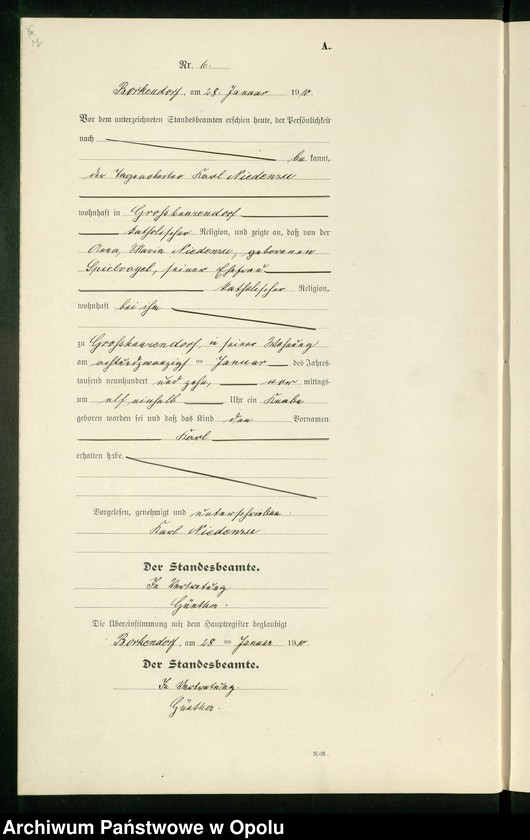 A.
Nr. 6.
Borkendorf, am 28. Januar 1910.
Vor dem unterzeichneten Standesbeamten erschien heute, der Persönlichkeit
nach
bekannt,
der Tagearbeiter Karl Niedenzu
wohnhaft in Großkunzendorf
katholischer Religion, und zeigte an, daß von der
Anna, Maria Niedenzu, geborenen
Spielvogel, seiner Ehefrau
katholischer Religion,
wohnhaft bei ihm
zu Großkunzendorf, in seiner Wohnung
am achtundzwanzigsten Januar des Jahres
tausend neunhundert und zehn, vor mittags
um elf einhalb Uhr ein Knabe
geboren worden sei und daß das Kind den Vornamen
Karl
erhalten habe.
Vorgelesen, genehmigt und unterschrieben.
Karl Niedenzu
Der Standesbeamte.
In Vertretung
Günther.
Die Übereinstimmung mit dem Hauptregister beglaubigt
Borkendorf, am 28 ten Januar 1910.
Der Standesbeamte.
In Vertretung.
Günther.
Archiwum Państwowe w Opolu